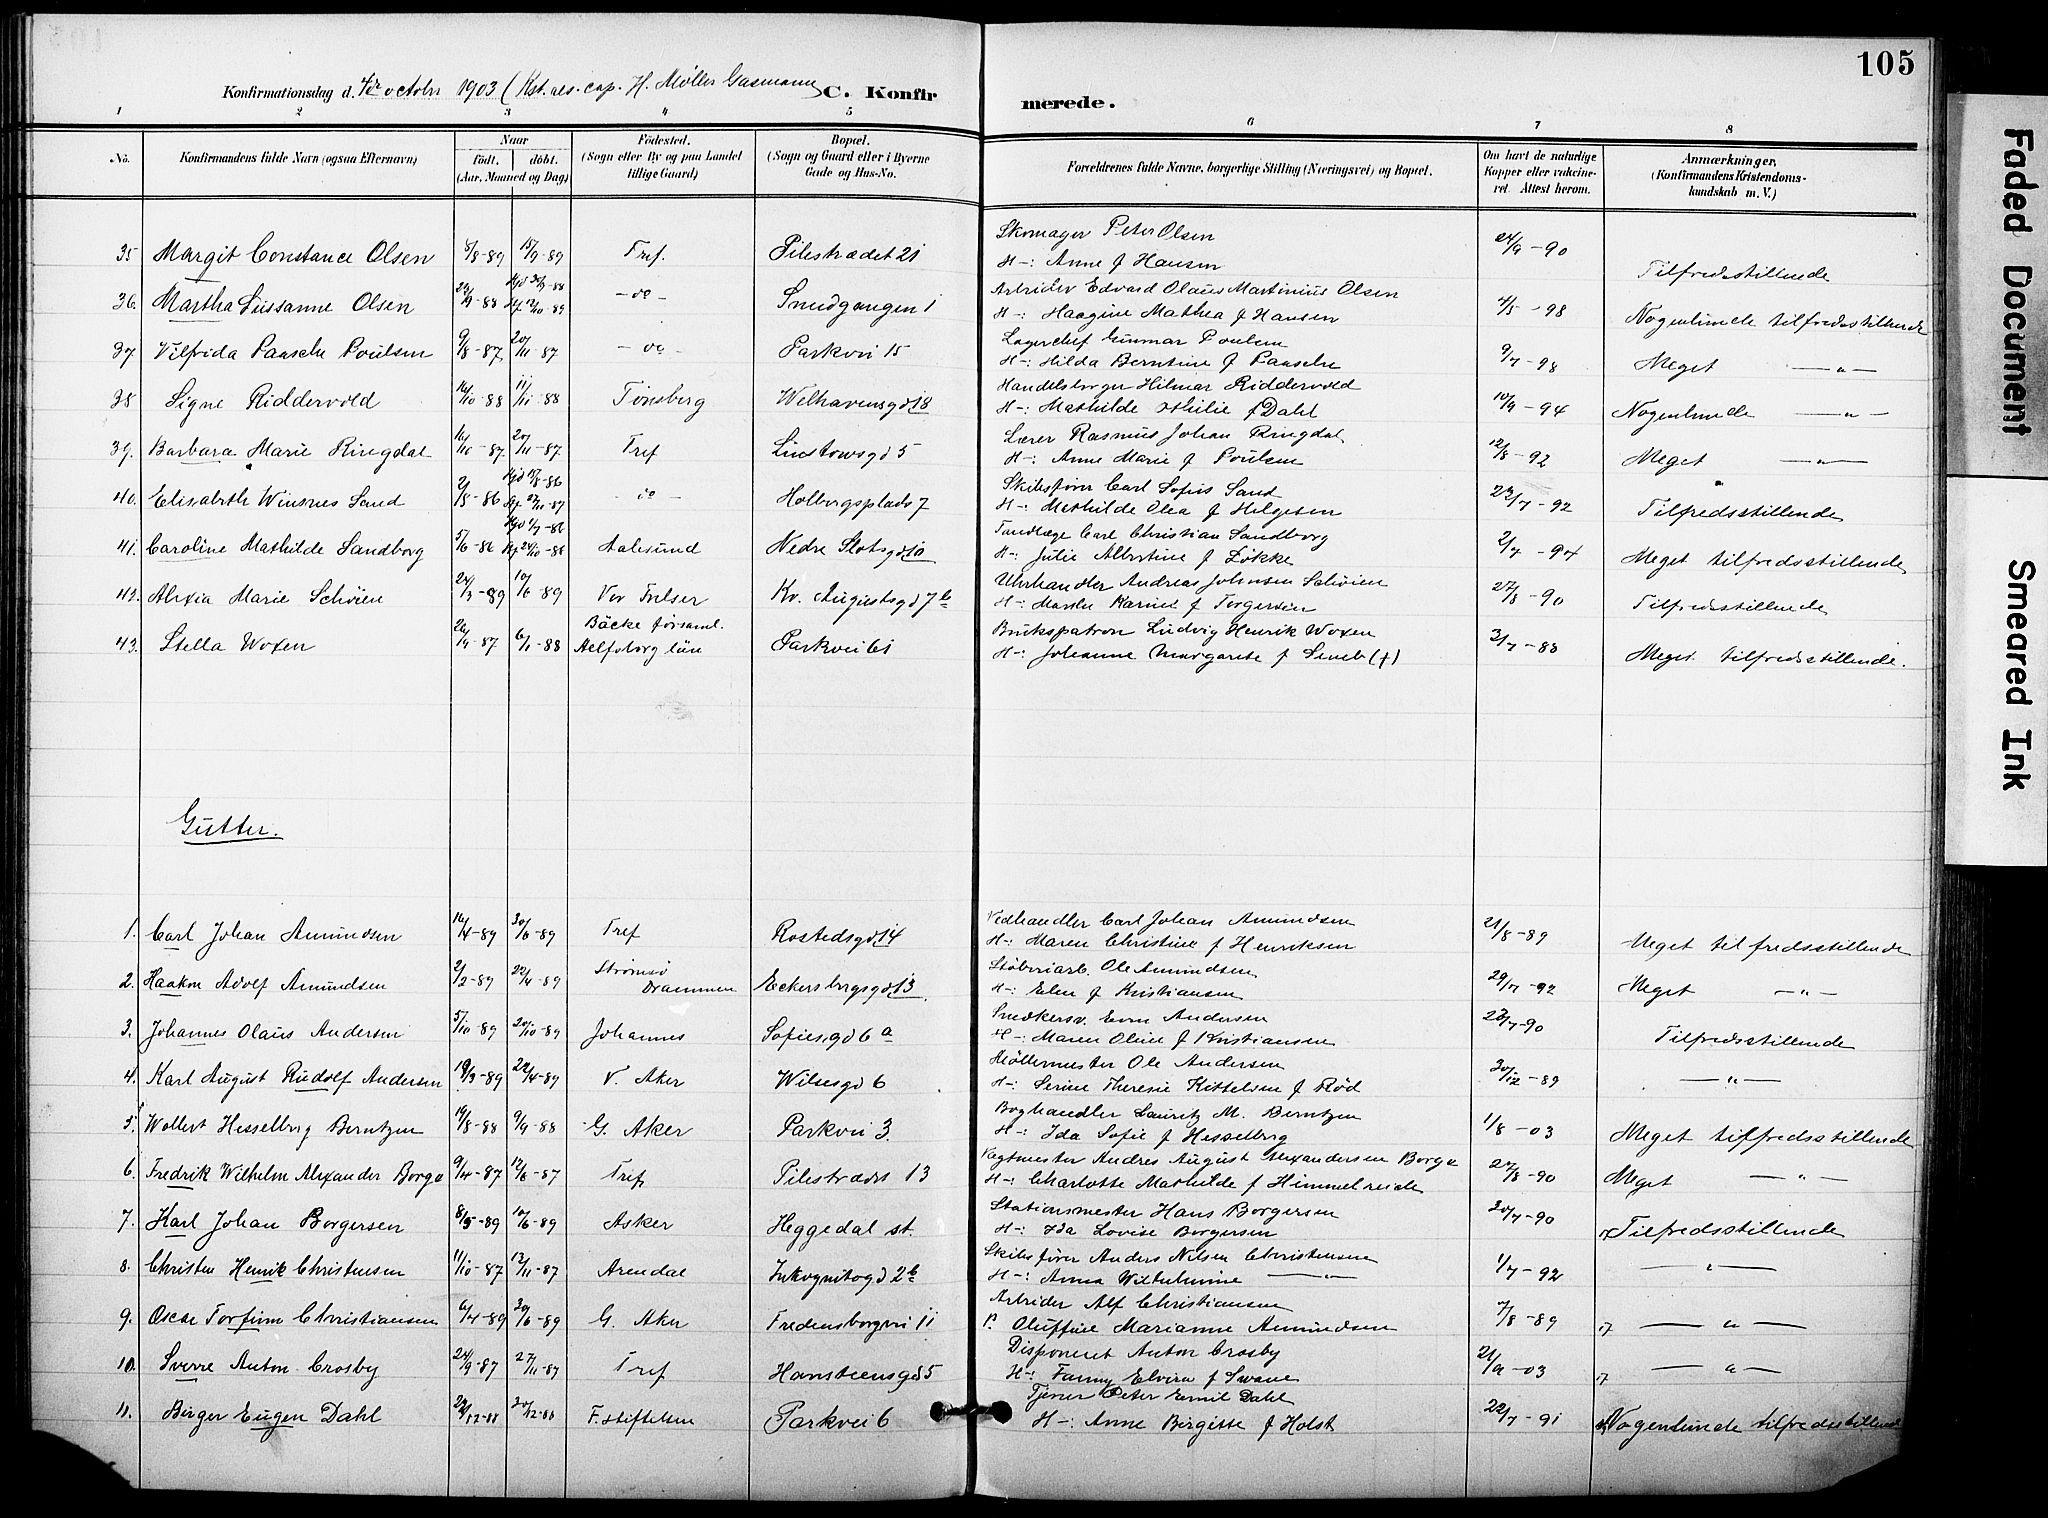 105
Konfirmationsdag d. 4de octobr 1903 (Kst. res. cap. H. Møller Gasmann) C. Konfirmerede.
1 2 3 4 5 6 7 8
No. Konfirmandens fulde Navn (ogsaa Efternavn) Naar födt. döbt. (Aar, Maaned og Dag) Födested. (Sogn eller By og paa Landet tillige Gaard) Bopæl. (Sogn og Gaard eller i Byerne Gade og Hus-No. Forældrenes fulde Navne, borgerlige Stilling (Næringsvei) og Bopæl. Om havt de naturlige Kopper eller vakcineret. Attest herom. Anmærkninger, (Konfirmandens Kristendomskundskab m. V.)
Skomager Peter Olsen
35 Margit Constance Olsen 8/8-89 15/9-89 Tref. Pilestrædet 21 H-: Anne f Hansen 24/9-90 Tilfredsstillende
Arbeider Edvard Olaus Martinius Olsen
36. Martha Sussanne Olsen -do- Smedgangen 1 H-: Haagine Mathea f Hansen 4/5-98 Nogenlunde tilfredsstillende
Lagerchef Gunnar Poulsen
37. Vilfrida Paasche Poulsen 9/8-87 20/11-87 -do- Parkvei 15 H-: Hilda Berntine f Paasche 9/7-98 Meget -"-
Handelsborger Hilmar Riddervold
38 Signe Riddervold 16/10-88 11/11-88 Tønsberg Welhavensgd 18 H-: Mathilde Othilie f Dahl 10/9-94 Nogenlunde -"-
Lærer Rasmus Johan Ringdal
39. Barbara Marie Ringdal 16/10-87 20/11-87 Tref Linstowsgd 5 H-: Anne Marie f Poulsen 12/8-92 Meget -"-
Skibsfører Carl Sofus Sand
40. Elisabeth Winsnes Sand 2/5-86 -do- Holbergsplads 7 H-: Mathilde Olea f Helgesen 22/7-92 Tilfredsstillende
Tandlæge Carl Christian Sandborg
41. Caroline Mathilde Sandborg 5/6-86 Aalesund Nedre Slotsgd 10 H-: Julie Albertine f Løkke 2/7-94 Meget tilfredsstillende
Uhrhandler Andreas Johnsen Schøien
42. Alexia Marie Schøien 24/3-89 10/6-89 Vor Frelser Kr. Augustsgd 7b H-: Marthe Karine f Torgersen 27/8-90 Tilfredsstillende
Bäcke församl. Brukspatron Ludvig Henrik Woxen
43. Stella Woxen 26/9-87 6/1-88 Aelfsborg län Parkvei 61 H-: Johanne Margarete f (†) 3/7-83 Meget tilfredsstillende.
Gutter.
Vedhandler Carl Johan Amundsen
1. Carl Johan Amundsen 16/4-89 30/6-89 Tref Rostedsgd 14 H-: Maren Christine f Henriksen 21/8-89 Meget tilfredsstillende
Strømsö Støberiarb. Ole Amundsen
2. Haakon Adolf Amundsen 2/2-89 22/4-89 Drammen Eckersbergsgd 13. H-: Elen f Kristiansen 29/7-92 Meget -"-
Snedkersv. Even Andersen
3. Johannes Olaus Andersen 5/10-89 20/10-89 Johannes Sofiesgd 6a H-: Maren Oline f Kristiansen 23/7-90 Tilfredsstillende
Møllermester Ole Andersen
4. Karl August Rudolf Andersen 19/3-89 22/4-89 V. Aker Wilsesgd 6 H-: Serine Theresie Kittelsen f Rød 30/12-89 -"-
Boghandler Lauritz M. Berntzen
5. Wollert Hesselberg Berntzen 19/8-88 9/9-88 G. Aker Parkvei 3. H-: Ida Sofie f Hesselberg 1/8-03 Meget tilfredsstillende
Vagtmester Andres August Alexandersen Borge
6. Fredrik Wilhelm Alexander Borge 9/4-87 12/6-87 Tref Pilestrædt 13 H-: Charlotte Mathilde f Himmelreide 27/8-90 Meget -"-
Stationsmester Hans Borgersen
7. Karl Johan Borgersen 8/5-89 10/6-89 Asker Heggedal st. H-: Ida Lovise Borgersen 30/7-90 Tilfredsstillende
Skibsfører Anders Nilsen Christensen
8. Christen Henrik Christensen 11/10-87 13/11-87 Arendal Inkognitogd 2b H-: Anna Wilhelmine -"- 1/7-92 -"-
Arbeider Alf Christiansen
9. Oscar Torfinn Christiansen 6/4-89 30/6-89 G. Aker Fredensborgvei 11 P. Oluffine Marianne Amundsen 7/8-89 -"-
Disponent Anton Crosby
10. Sverre Anton Crosby 24/9-87 27/11-87 Tref Hansteensgd 5 H-: Fanny Elvira f Svane 21/9-03 -"-
Tjener Peter Emil Dahl
11. Birger Eugen Dahl 22/12-88 F. stiftelsen Parkvei 6 H-: Anne Birgitte f Holst 22/7-91 Nogenlunde tilfredsstillende
Faded Document
Smeared Ink